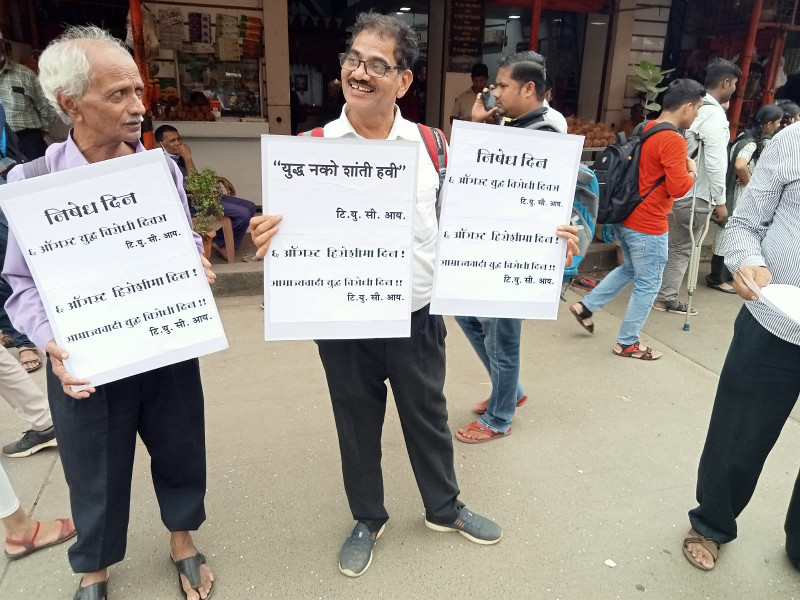 निषेध दिन
६ ऑगस्ट युद्ध विरोधी दिवस
टि. यु. सी. आय.
६ ऑगस्ट हिरोशीमा दिन !
साम्राज्यवादी युद्ध विरोधी दिन !!
टि. यु. सी. आय.
"युद्ध नको शांती हवी"
टि. यु. सी. आय.
६ ऑगस्ट हिरोशीमा दिन !
साम्राज्यवादी युद्ध विरोधी दिन !!
टि. यु. सी. आय.
निषेध दिन
६ ऑगस्ट युद्ध विरोधी दिवस
टि. यु. सी. आय.
६ ऑगस्ट हिरोशीमा दिन !
साम्राज्यवादी युद्ध विरोधी दिन !!
टि. यु. सी. आय.